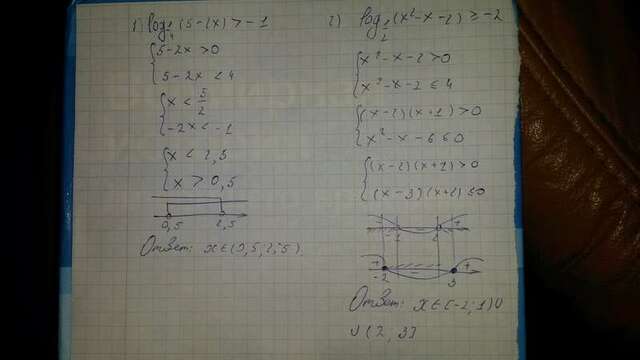 1) log 1/4 (5-2x) > -1
{ 5-2x > 0
5-2x < 4
{ x < 5/2
-2x < -1
{ x < 2,5
x > 0,5
0,5 2,5
Ответ: x∈(0,5; 2,5).
2) log 1/2 (x²-x-2) ≥ -2
{ x²-x-2 > 0
x²-x-2 ≤ 4
{ (x-2)(x+1) > 0
x²-x-6 ≤ 0
{ (x-2)(x+2) > 0
(x-3)(x+2) ≤ 0
+ -1 - 2 +
+ -2 - 3 +
Ответ: x∈[-2; 1)∪
∪(2, 3]